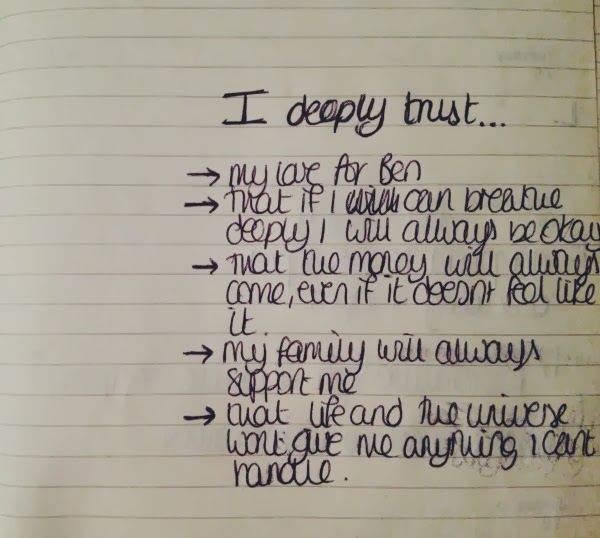 I deeply trust...
→ my love for Ben
→ that if I can breathe
deeply I will always be okay
→ that the money will always
come, even if it doesn't feel like
it.
→ my family will always
support me
→ that life and the universe
won't give me anything I can't
handle.